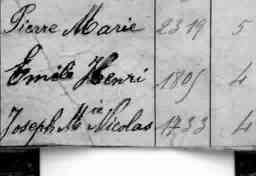 Pierre Marie 2319 5
Emile Henri 1805 4
Joseph Mie Nicolas 1733 4